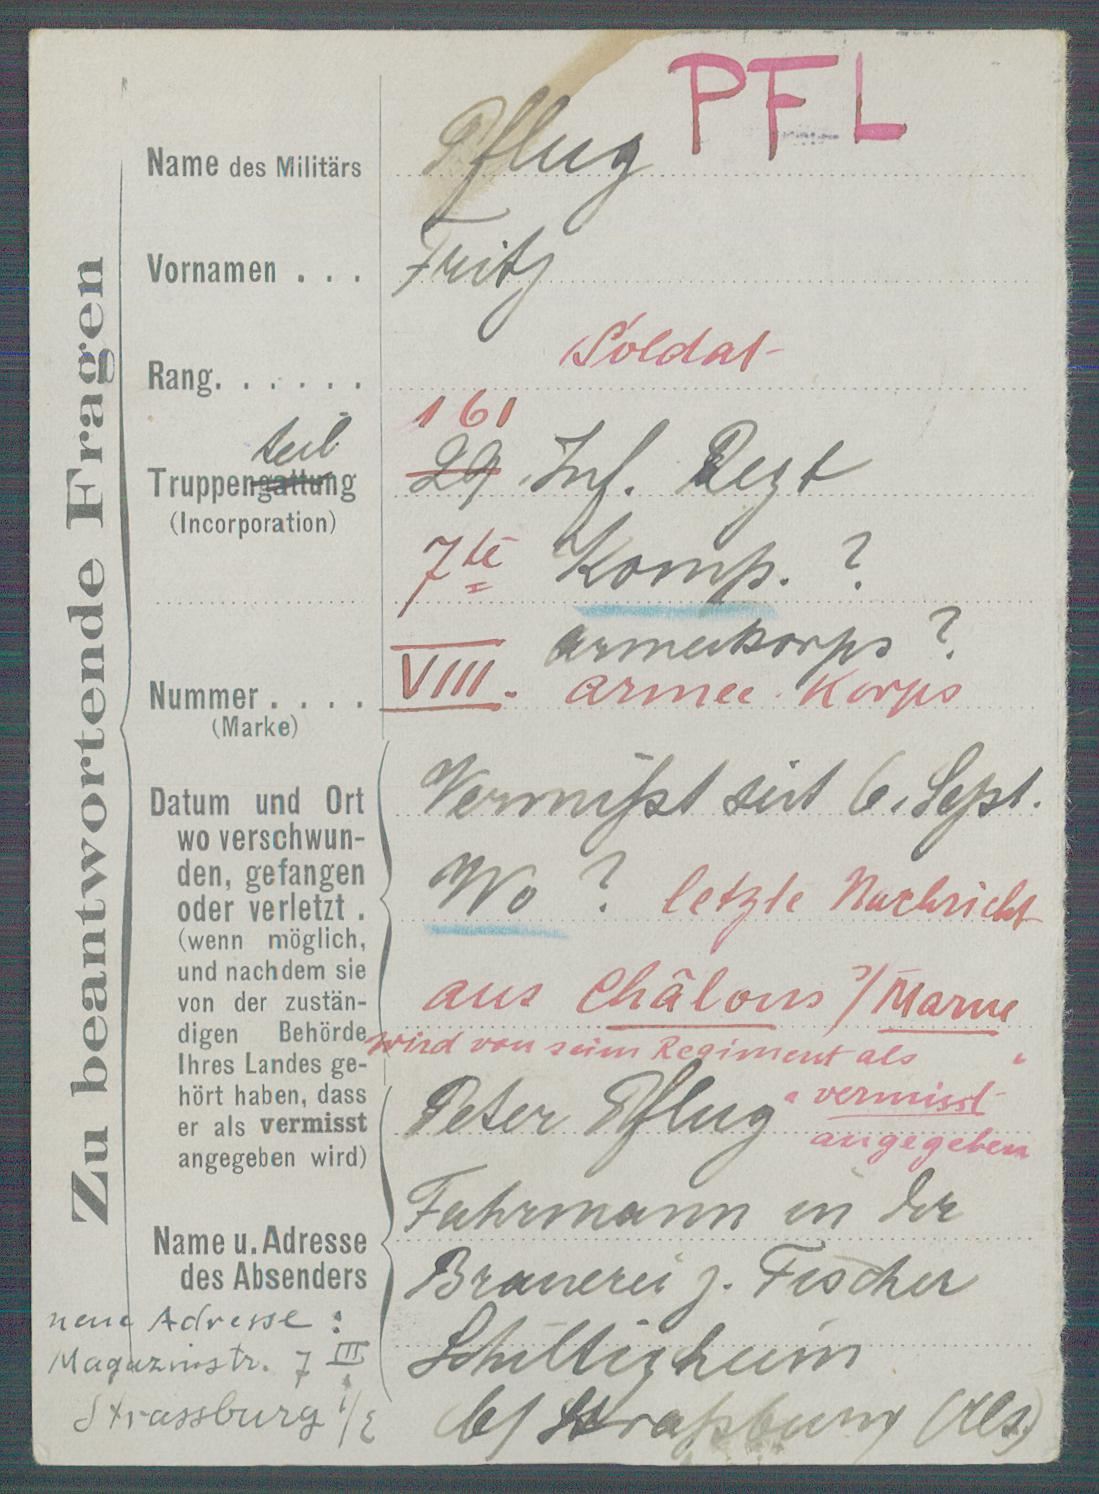 PFL
Zu beantwortende Fragen
Name des Militärs Pflug
Vornamen . . . Fritz
Rang. . . . . . Soldat
161
teil
Truppengattung 29. Inf. Regt
(Incorporation)
7te Komp. ?
Armeekorps ?
Nummer . . . . VIII. Armee Korps
(Marke)
Datum und Ort
wo verschwun-
den, gefangen
oder verletzt .
(wenn möglich,
und nachdem sie
von der zustän-
digen Behörde
Ihres Landes ge-
hört haben, dass
er als vermisst
angegeben wird)
Vermißt seit 6. Sept.
Wo ? letzte Nachricht
aus Châlons s/Marne
wird von seim Regiment als
"vermisst"
angegeben
Name u. Adresse
des Absenders
Peter Pflug
Fuhrmann in der
Brauerei z. Fischer
Schiltigheim
b/ Straßburg (Els)
neue Adresse :
Magazinstr. 7 III
Strassburg i/E